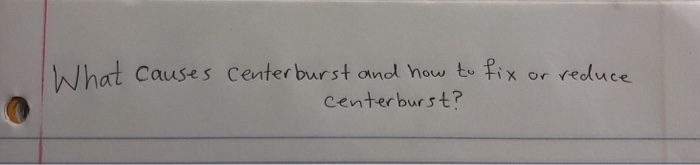 What causes centerburst and how to fix or reduce
centerburst?